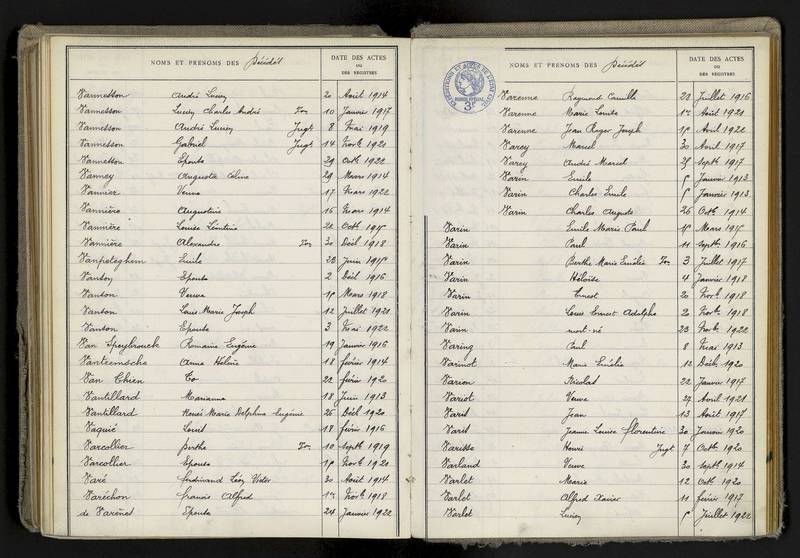 NOMS ET PRENOMS DES Décédés
DATE DES ACTES
OU
DES REGISTRES
Vannesson André Lucien 20 Août 1914
Vannesson Lucien Charles André Ton 10 Janvier 1917
Vannesson André Lucien Jugt 8 Mai 1919
Vannesson Gabriel Jugt 14 Novb 1921
Vannesson Epouse 29 Octb 1922
Vanney Auguste Célina 29 Mars 1914
Vannier Veuve 17 Mars 1922
Vannière Augustine 16 Mars 1914
Vannière Louise Léontine 21 Octb 1915
Vannière Alexandre Ton 30 Déc 1918
Vanpeteghem Emile 23 Juin 1915
Vanson Epouse 2 Déc 1916
Vanton Veuve 15 Mars 1918
Vanton Louis Marie Joseph 12 Juillet 1920
Vanton Epouse 3 Mai 1922
Van Speybrouck Romaine Eugénie 19 Janvier 1916
Vantremsche Anna Hélène 18 février 1914
Van Chien Co 22 févrie 1920
Vantillard Marianne 18 Juin 1913
Vantillard Renée Marie Delphine Eugénie 26 Déc 1920
Vaquié Louis 18 févrie 1916
Varcollier Berthe Ton 10 Septb 1919
Varcollier Epouse 15 Novb 1920
Varé Ferdinand Léon Victor 30 Août 1914
Varéchon francis Alfred 1er Novb 1918
de Varènes Epouse 24 Janvier 1922
NOMS ET PRENOMS DES Décédés
DATE DES ACTES
OU
DES REGISTRES
Varenne Raymond Camille 28 Juillet 1916
Varenne Marie Louise 1er Août 1921
Varenne Jean Roger Joseph 15 Avril 1922
Varey Marcel 30 Avril 1917
Varey André Marcel 25 Septb 1917
Varin Emile 5 Janvier 1913
Varin Charles Emile 5 Janvier 1913
Varin Charles Auguste 26 Octb 1914
Varin Emile Marie Paul 15 Mars 1915
Varin Paul 11 Septb 1916
Varin Berthe Marie Emélie Ton 3 Juillet 1917
Varin Héloïse 4 Janvier 1918
Varin Ernest 20 Novb 1918
Varin Louis Ernest Adolphe 2 Novb 1918
Varin mort-né 23 Novb 1922
Varing Paul 8 Mai 1913
Varinot Marie Emélie 12 Décb 1920
Varion Nicolas 22 Janvier 1917
Variot Veuve 27 Avril 1921
Varis Jean 13 Août 1917
Varis Jeanne Louise florentine 30 Janvier 1920
Varisse Henri Jugt 7 Octb 1920
Varland Veuve 30 Septb 1914
Varlet Marie 12 Octb 1920
Varlet Alfred Xavier 11 février 1917
Varlet Lucien 5 Juillet 1922